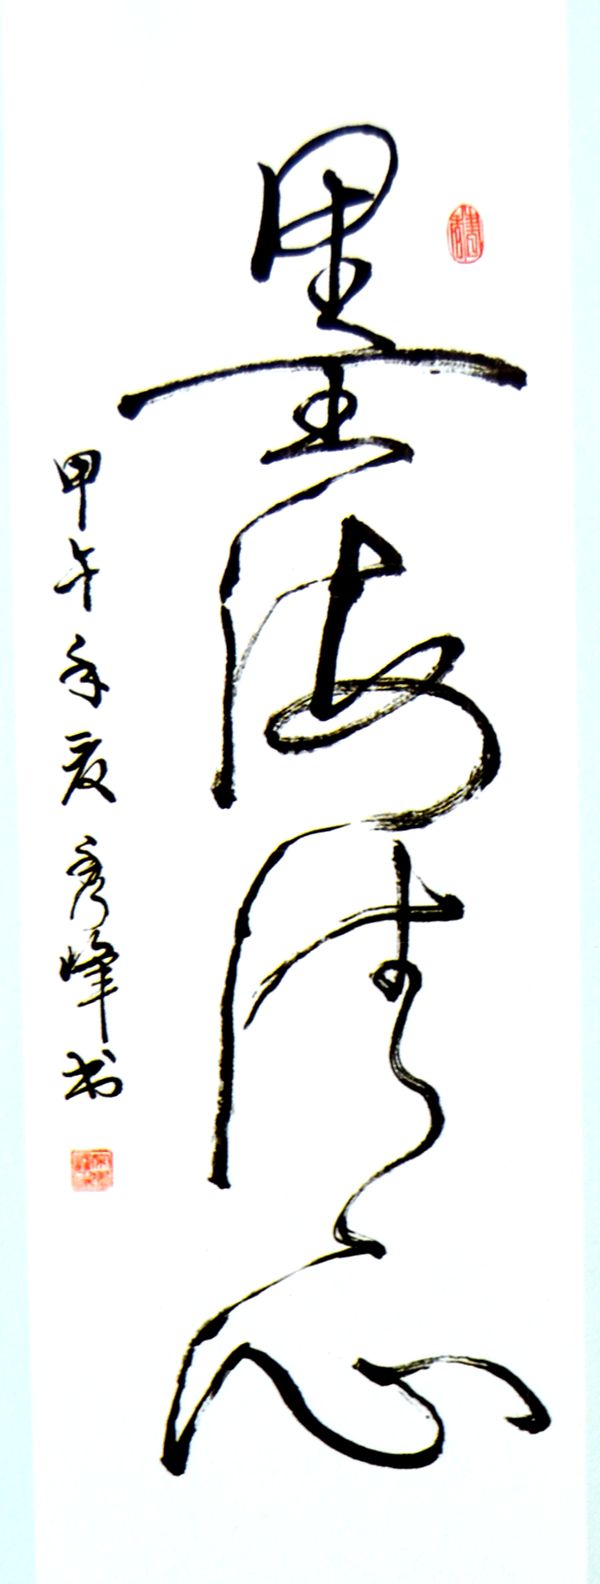 墨海清心
甲午年夏秀峰书